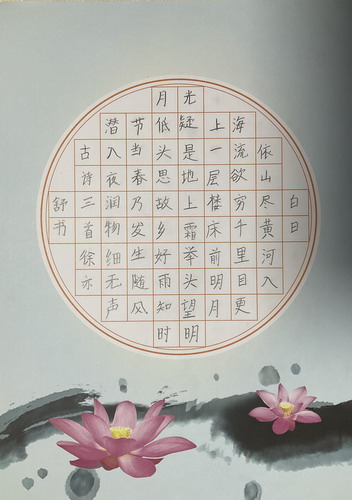 白日
依山尽黄河入
海流欲穷千里目更
上一层楼床前明月
光疑是地上霜举头望明
月低头思故乡好雨知时
节当春乃发生随风
潜入夜润物细无声
古诗三首徐亦
舒书